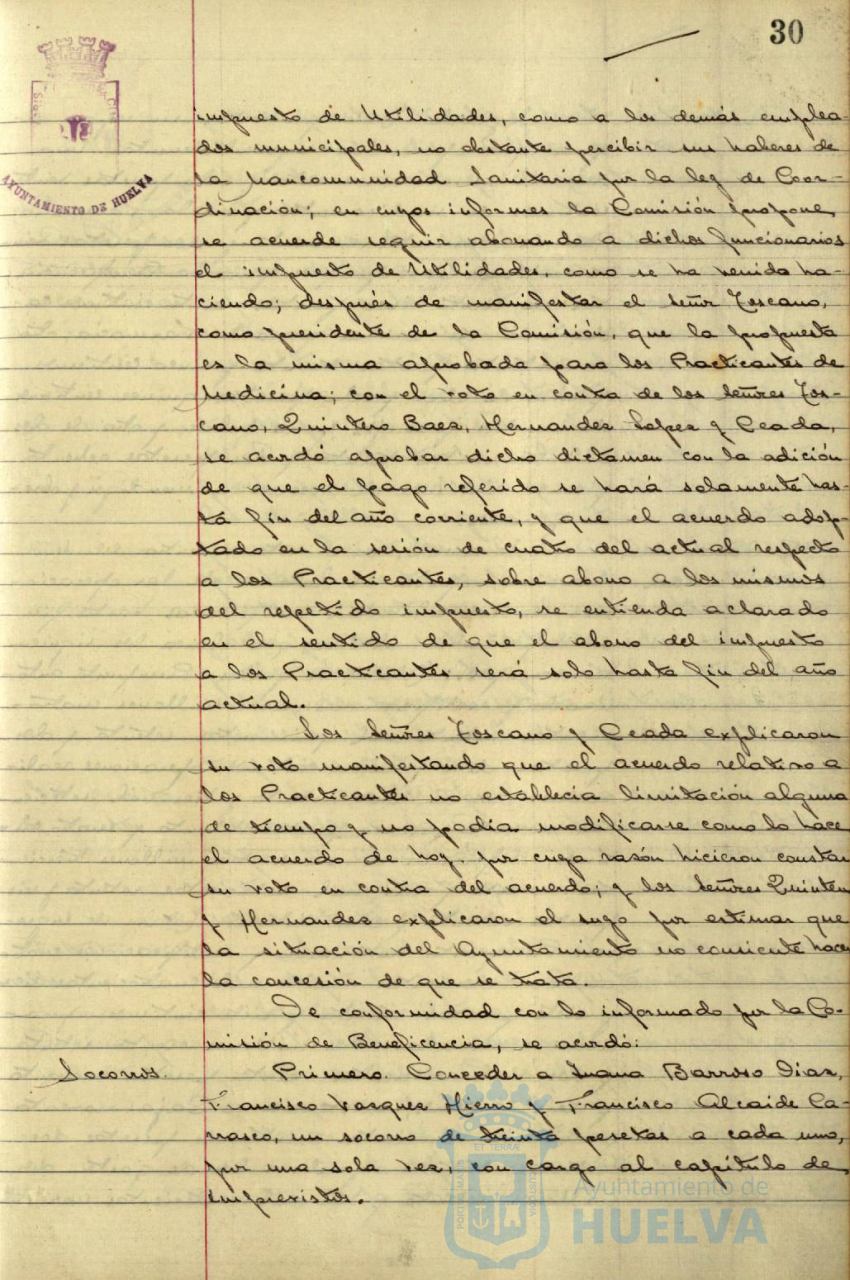 30
AYUNTAMIENTO DE HUELVA
impuesto de Utilidades, como a los demás emplea-
dos municipales, no obstante percibir sus haberes de
la Mancomunidad Sanitaria por la ley de Coor-
dinación; en cuyos informes la Comisión propone
se acuerde seguir abonando a dichos funcionarios
el impuesto de Utilidades, como se ha venido ha-
ciendo; después de manifestar el Señor Toscano,
como presidente de la Comisión, que la propuesta
es la misma aprobada para los Practicantes de
Medicina; con el voto en contra de los Señores Tos-
cano, Quintero Baez, Hernandez Lopez y Ceada,
se acordó aprobar dicho dictamen con la adición
de que el pago referido se hará solamente has-
ta fin del año corriente, y que el acuerdo adop-
tado en la sesión de cuatro del actual respecto
a los Practicantes, sobre abono a los mismos
del repetido impuesto, se entienda aclarado
en el sentido de que el abono del impuesto
a los Practicantes será solo hasta fin del año
actual.
Los Señores Toscano y Ceada explicaron
su voto manifestando que el acuerdo relativo a
los Practicantes no establecía limitación alguna
de tiempo y no podía modificarse como lo hace
el acuerdo de hoy, por cuya razón hicieron constar
su voto en contra del acuerdo; y los Señores Quintero
y Hernandez explicaron el suyo por estimar que
la situación del Ayuntamiento no consiente hacer
la concesión de que se trata.
De conformidad con lo informado por la Co-
misión de Beneficencia, se acordó:
Socorros. Primero. Conceder a Juana Barroso Diaz,
Francisco Vazquez Hierro y Francisco Alcaide Ca-
rrasco, un socorro de treinta pesetas a cada uno,
por una sola vez, con cargo al capítulo de
imprevistos.
Ayuntamiento de
HUELVA